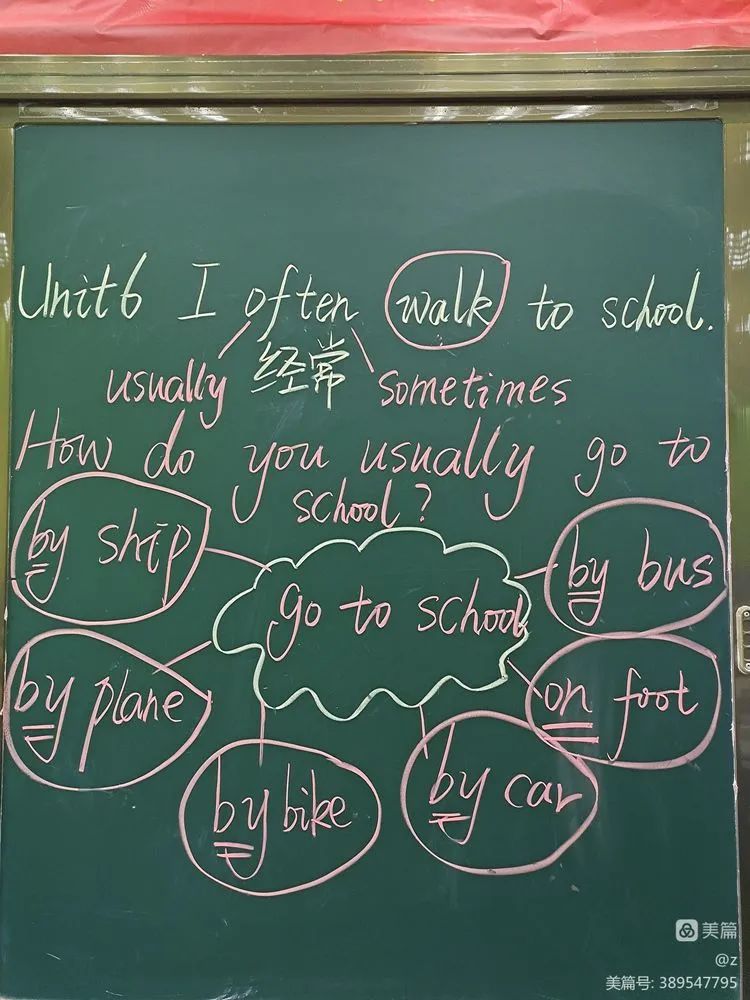 Unit6 I often walk to school.
usually 经常 sometimes
How do you usually go to
school?
by ship
by bus
go to school
by plane
on foot
by bike
by car
美篇
@z
美篇号: 389547795